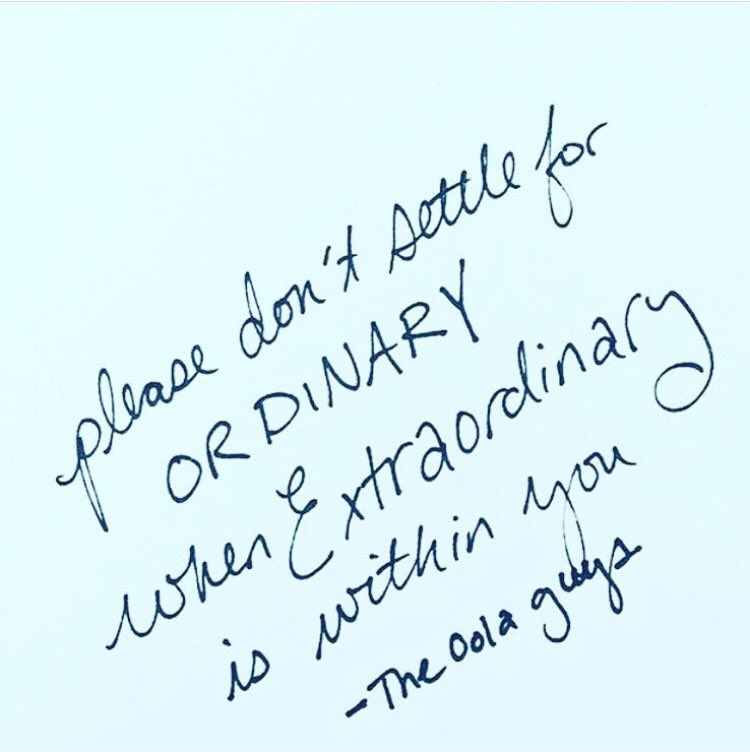 please don't settle for
ORDINARY
when Extraordinary
is within you
-The Oola guys